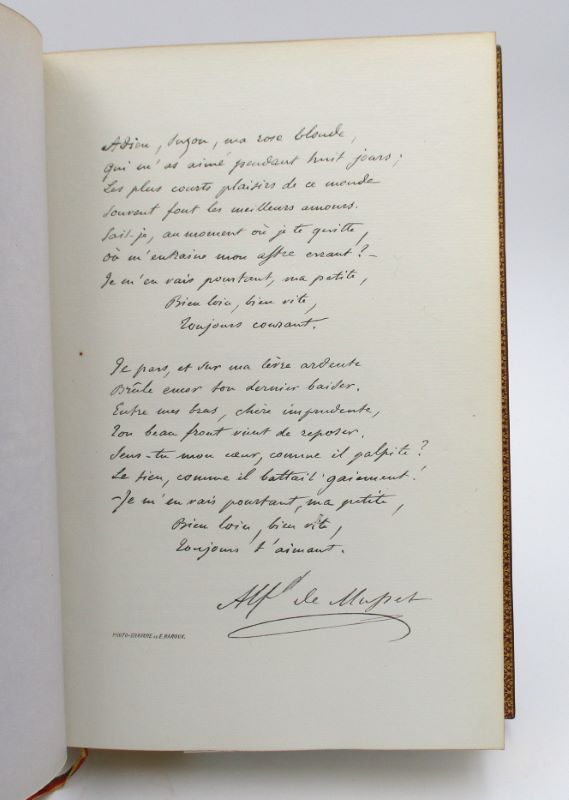 Adieu, Suzon, ma rose blonde,
Qui m'as aimé pendant huit jours;
Les plus courts plaisirs de ce monde
Souvent font les meilleurs amours.
Sais-je, au moment où je te quitte,
Où m'entraîne mon astre errant? –
Je m'en vais pourtant, ma petite,
Bien loin, bien vite,
Toujours courant.
Je pars, et sur ma lèvre ardente
Brûle encor ton dernier baiser.
Entre mes bras, chère imprudente,
Ton beau front vient de reposer.
Sens-tu mon cœur, comme il palpite?
Le tien, comme il battait gaiement!
– Je m'en vais pourtant, ma petite,
Bien loin, bien vite,
Toujours t'aimant.
Alf. de Musset
PHOTO-GRAVURE DE E. BAROUX.